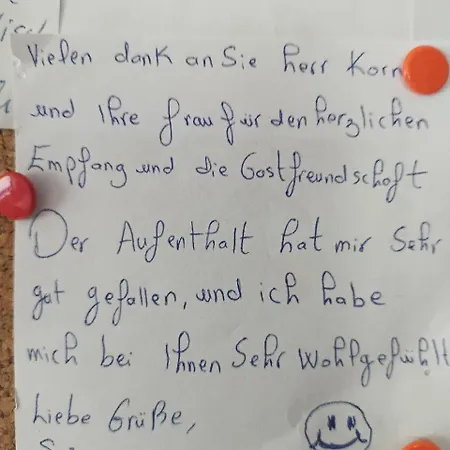 Vielen dank an Sie herr Korn
und Ihre frau für den herzlichen
Empfang und die Gastfreundschaft
Der Aufenthalt hat mir Sehr
gut gefallen, und ich habe
mich bei Ihnen Sehr Wohlgefühlt
Liebe Grüße,